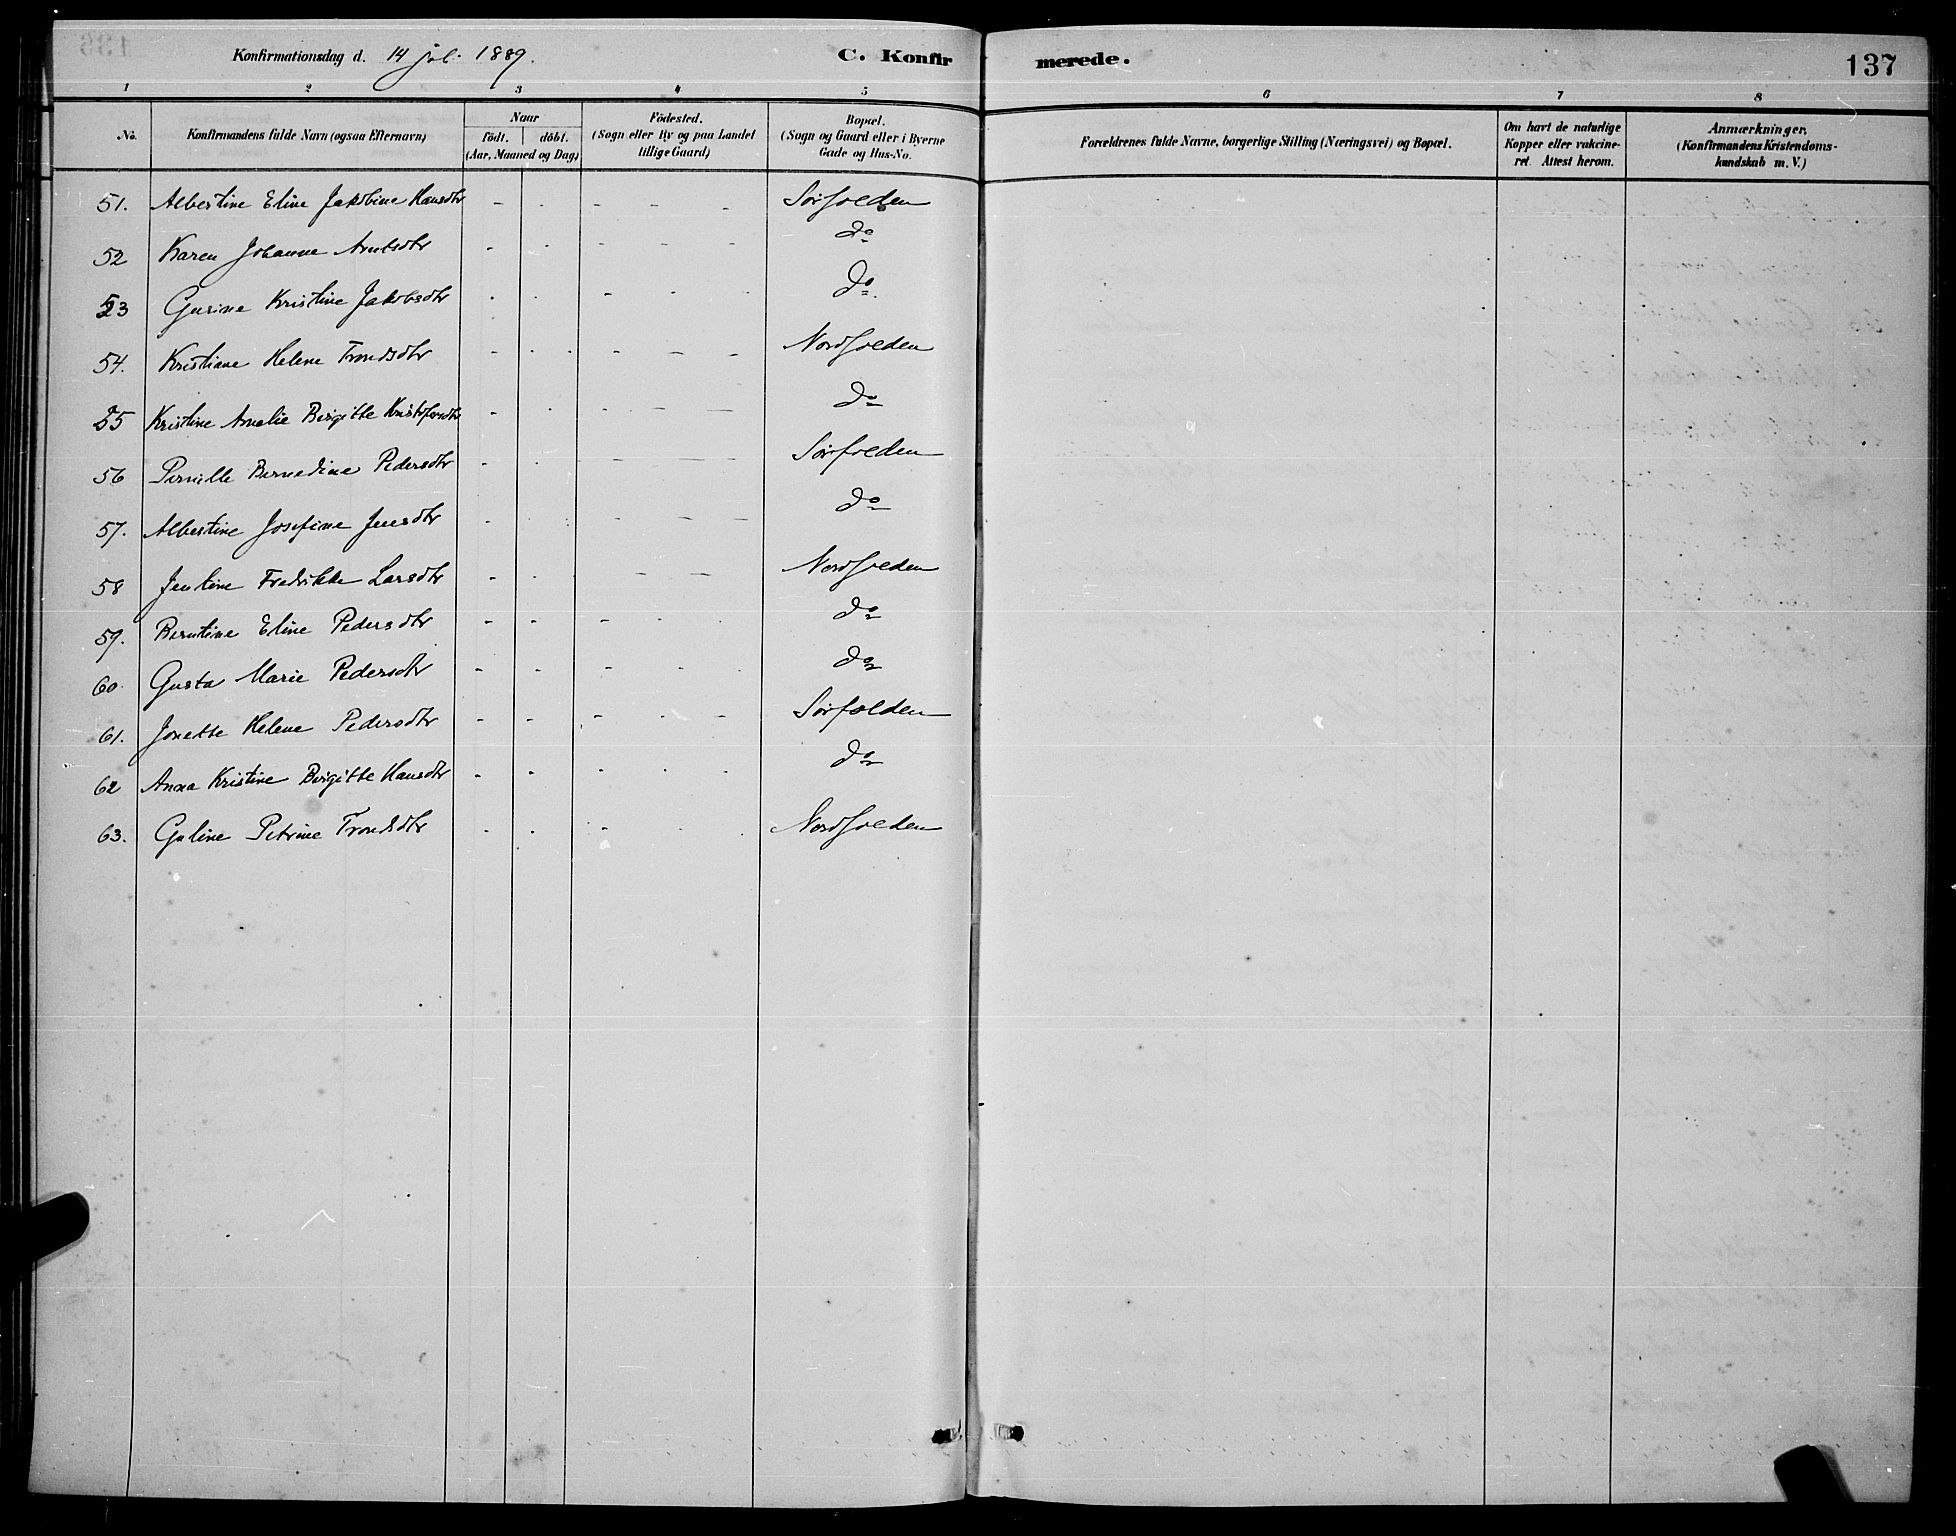 Konfirmationsdag d. 14 jul. 1889. C. Konfirmerede. 137
1 2 3 4 5 6 7 8
No. Konfirmandens fulde Navn (ogsaa Efternavn) Naar födt. döbt. (Aar, Maaned og Dag) Födested. (Sogn eller By og paa Landet tillige Gaard) Bopæl. (Sogn og Gaard eller i Byerne Gade og Hus-No. Forældrenes fulde Navne, borgerlige Stilling (Næringsvei) og Bopæl. Om havt de naturlige Kopper eller vakcineret. Attest herom. Anmærkninger. (Konfirmandens Kristendomskundskab m. V.)
51. Albertine Eline Jakobine Hansdtr - - - - - Sørfolden
52 Karen Johanne Arntsdtr - - - - - do
53 Gurine Kristine Jakobsdtr - - - - - do
54. Kristiane Helene Trondsdtr - - - - - Nordfolden
55 Kristine Amalie Birgitte Kristofersdtr - - - - - do
56 Pernille Bernedine Pedersdtr - - - - - Sørfolden
57. Albertine Josefine Jensdtr - - - - - do
58 Jentine Fredrikke Larsdtr - - - - - Nordfolden
59. Berntine Eline Pedersdtr - - - - - do
60. Gusta Marie Pedersdtr - - - - - do
61. Jonette Helene Pedersdtr - - - - - Sørfolden
62 Anna Kristine Birgitte Hansdtr - - - - - do
63. Guline Petrine Trondsdtr - - - - - Nordfolden